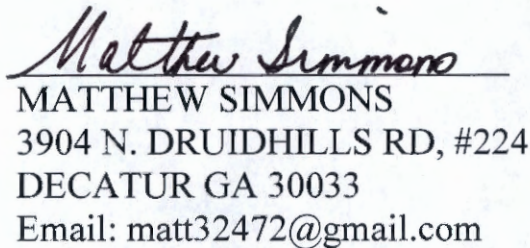 Matthew Simmons
MATTHEW SIMMONS
3904 N. DRUIDHILLS RD, #224
DECATUR GA 30033
Email: matt32472@gmail.com